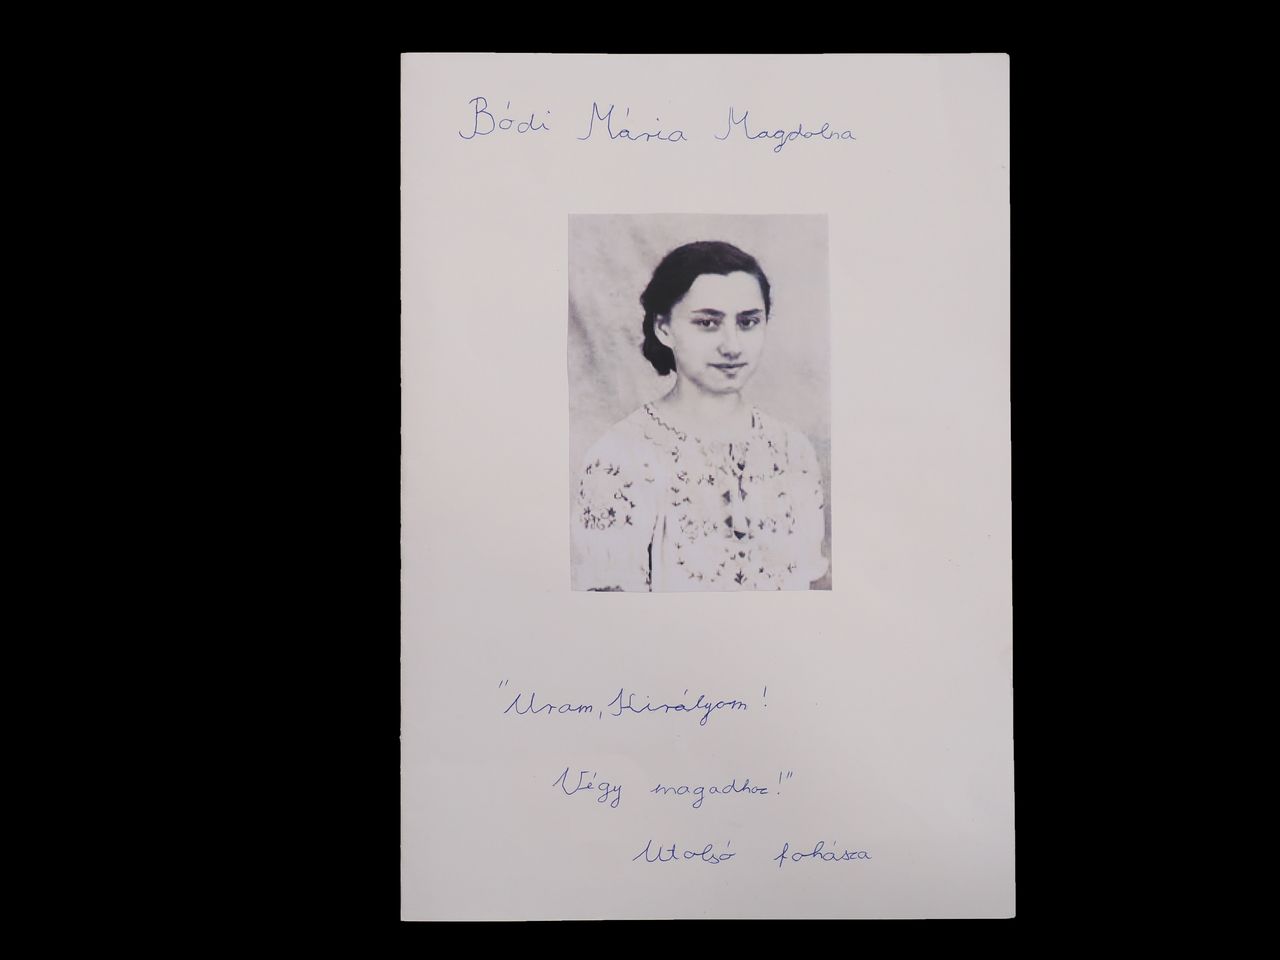 Bódi Mária Magdolna
"Uram, Királyom!
Végy magadhoz!"
Utolsó fohásza